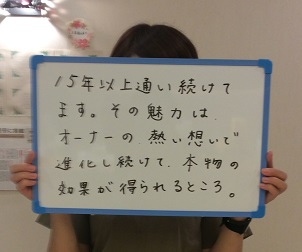 15年以上通い続けて
ます。その魅力は
オーナーの熱い想いで
進化し続けて、本物の
効果が得られるところ。